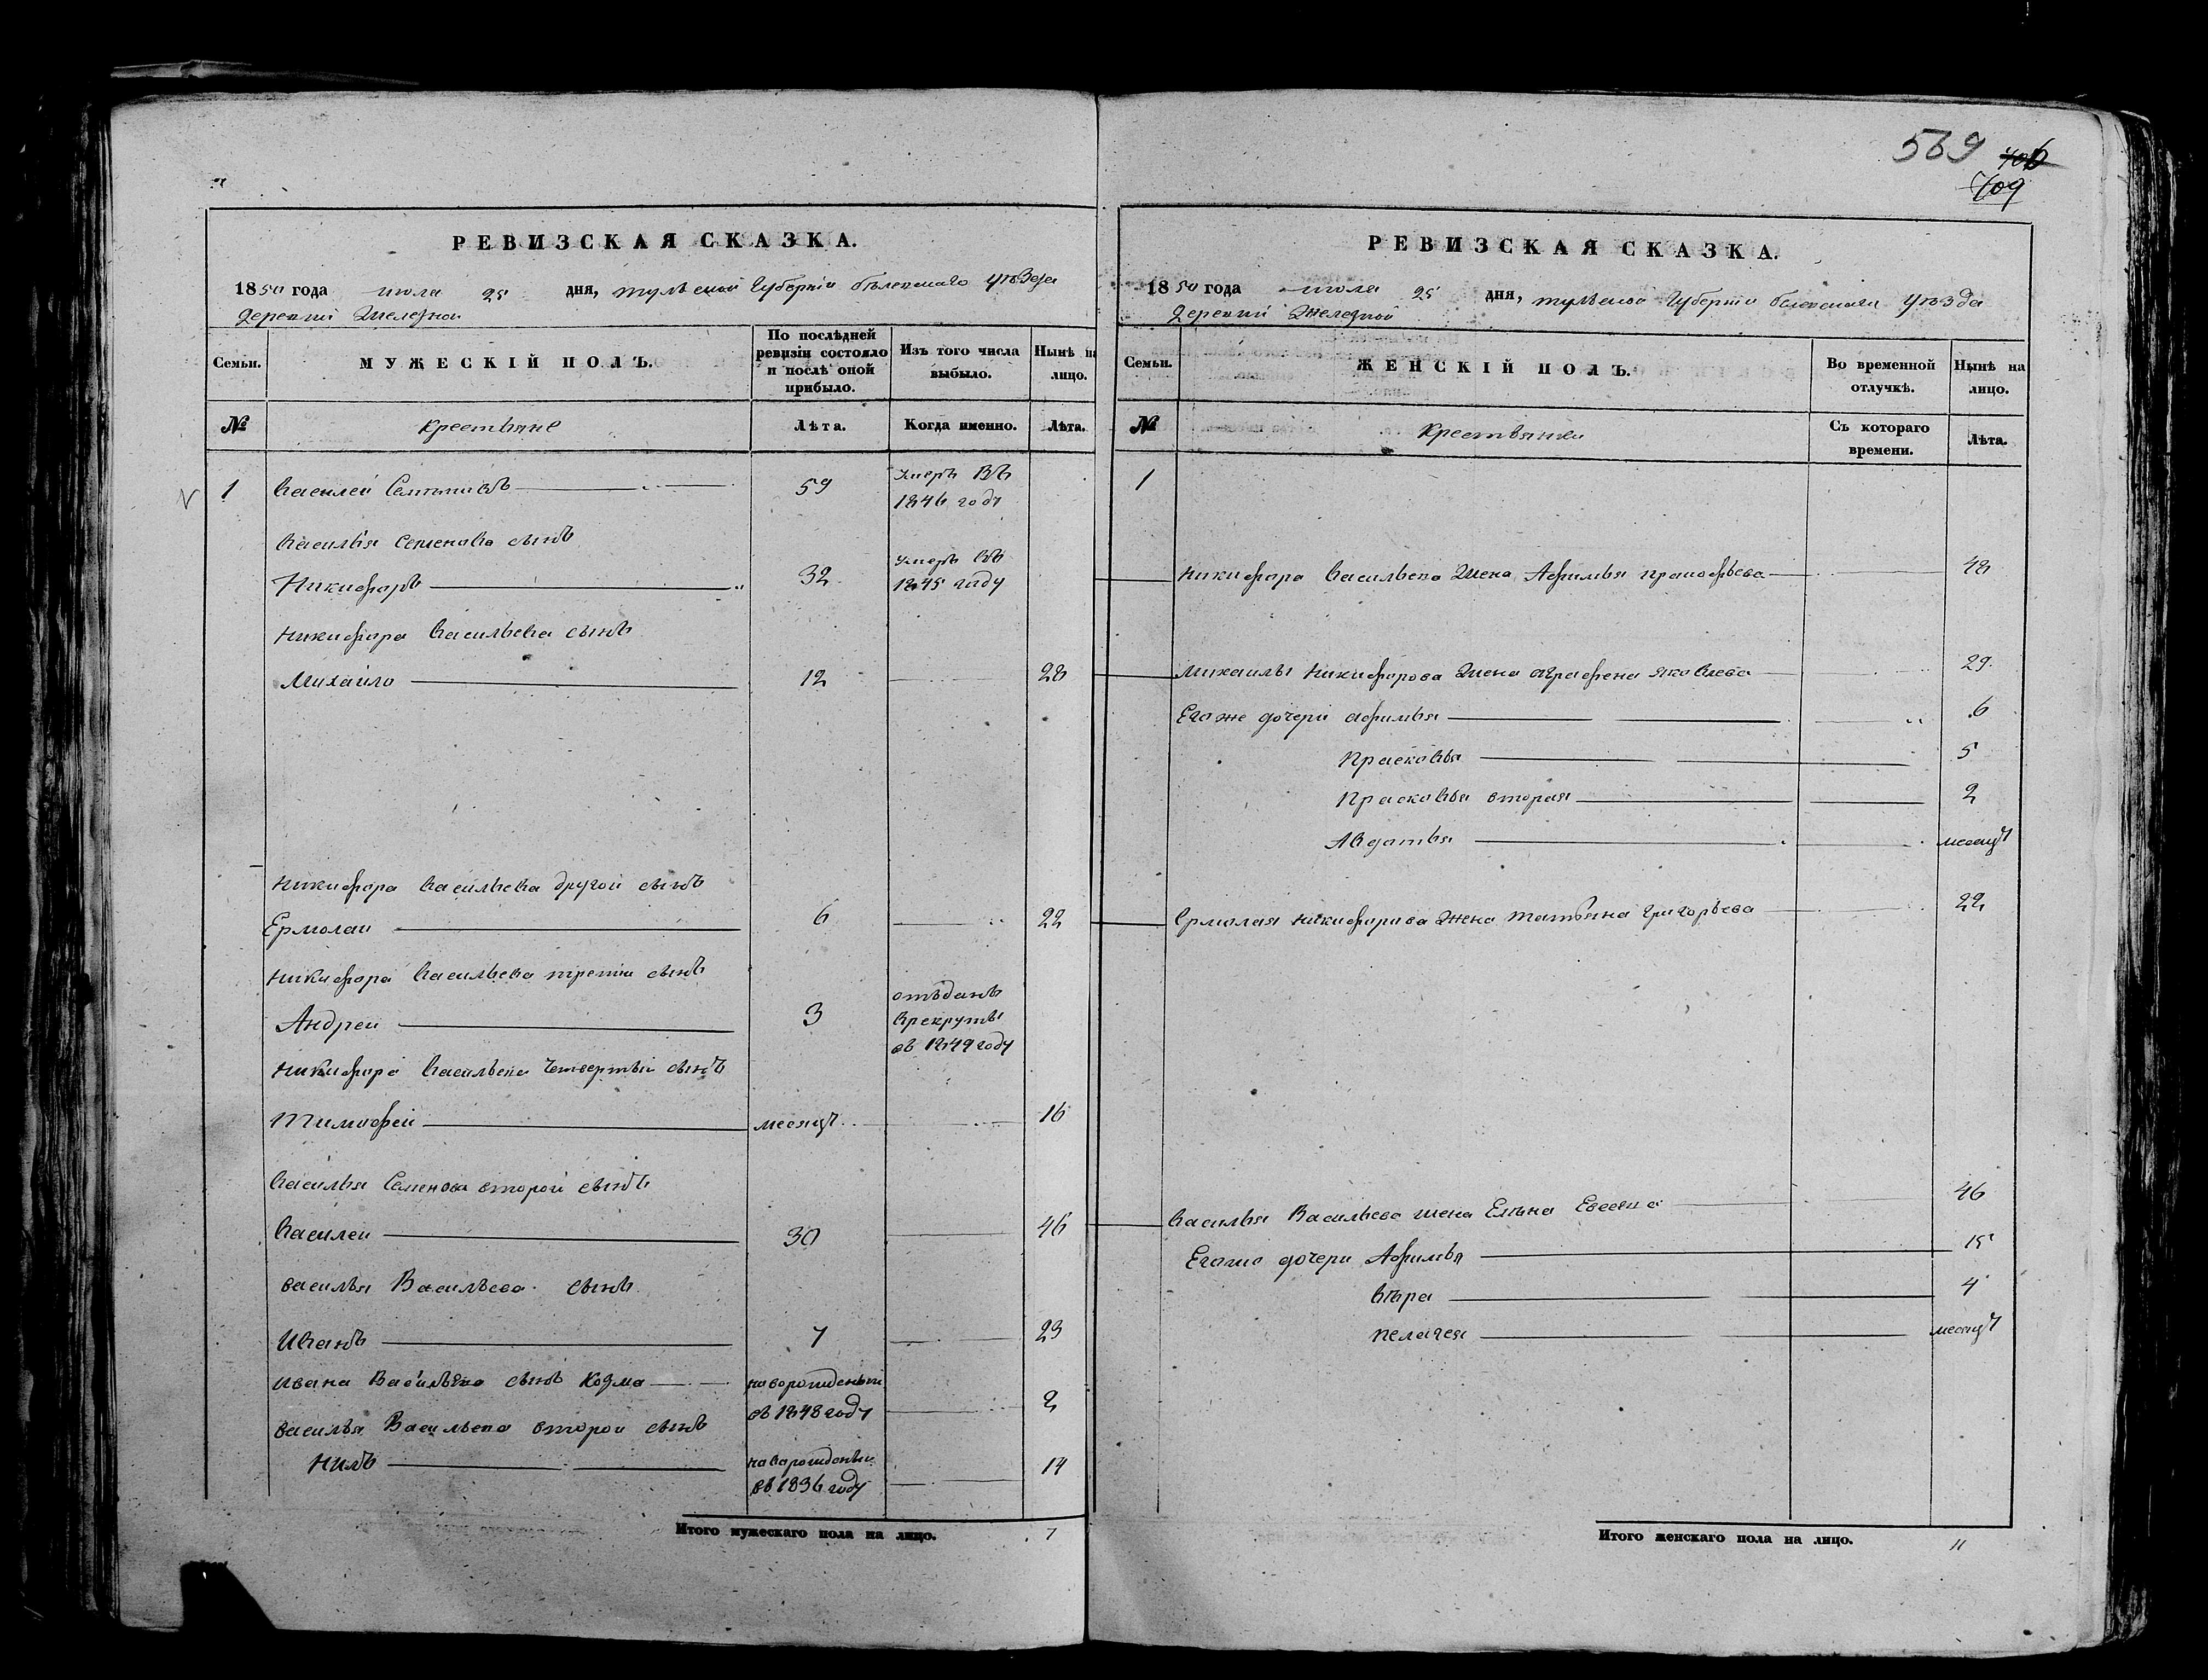 569 406
409
РЕВИЗСКАЯ СКАЗКА.
1850 года июля 25 дня, тульской Губернiи белевскаго уѣзда
деревни Железной
Семьи. МУЖЕСКIЙ ПОЛЪ. По послѣдней ревизiи состояло и послѣ оной прибыло. Изъ того числа выбыло. Нынѣ на лицо.
№ Крестьяне Лѣта. Когда именно. Лѣта.
1 Василей Семеновъ 59 Умеръ Въ
1846 году
Василья Семенова сынъ
Никифоръ 32 Умеръ Въ
1845 году
Никифора Васильева сынъ
Михайло 12 28
Никифора Васильева другой сынъ
Ермолаи 6 22
Никифора Васильева третiи сынъ
Андреи 3 отъданъ
Врекруты
въ 1849 году
Никифора Васильева Четвертый сынъ
Тимофеи месяцъ 16
Василья Семенова второй сынъ
Василеи 30 46
василья Васильева сынъ
Иванъ 7 23
ивана Васильева сынъ Козма новорожденыи
въ 1848 году 2
василья Васильева второи сынъ
Нилъ новорожденыи
въ 1836 году 14
Итого мужескаго пола на лицо. 7
РЕВИЗСКАЯ СКАЗКА.
1850 года июля 25 дня, тульской Губернiи белевскаго уѣзда
деревни Железной
Семьи. ЖЕНСКIЙ ПОЛЪ. Во временной отлучкѣ. Нынѣ на лицо.
№ Крестьянки Съ котораго времени. Лѣта.
1
Никифора Васильева Жена Афимья прокофьева 48
Михаилы Никифорова Жена аграфена яковлева 29
Егоже дочери афимья 6
Прасковья 5
Прасковья вторая 2
Авдотья месяцъ
Ермолая Никифорова Жена татьяна григорьева 22
Василья Васильева жена Елена Евсева 46
Егоже дочери Афимья 15
вѣра 4
пелагея месяцъ
Итого женскаго пола на лицо. 11